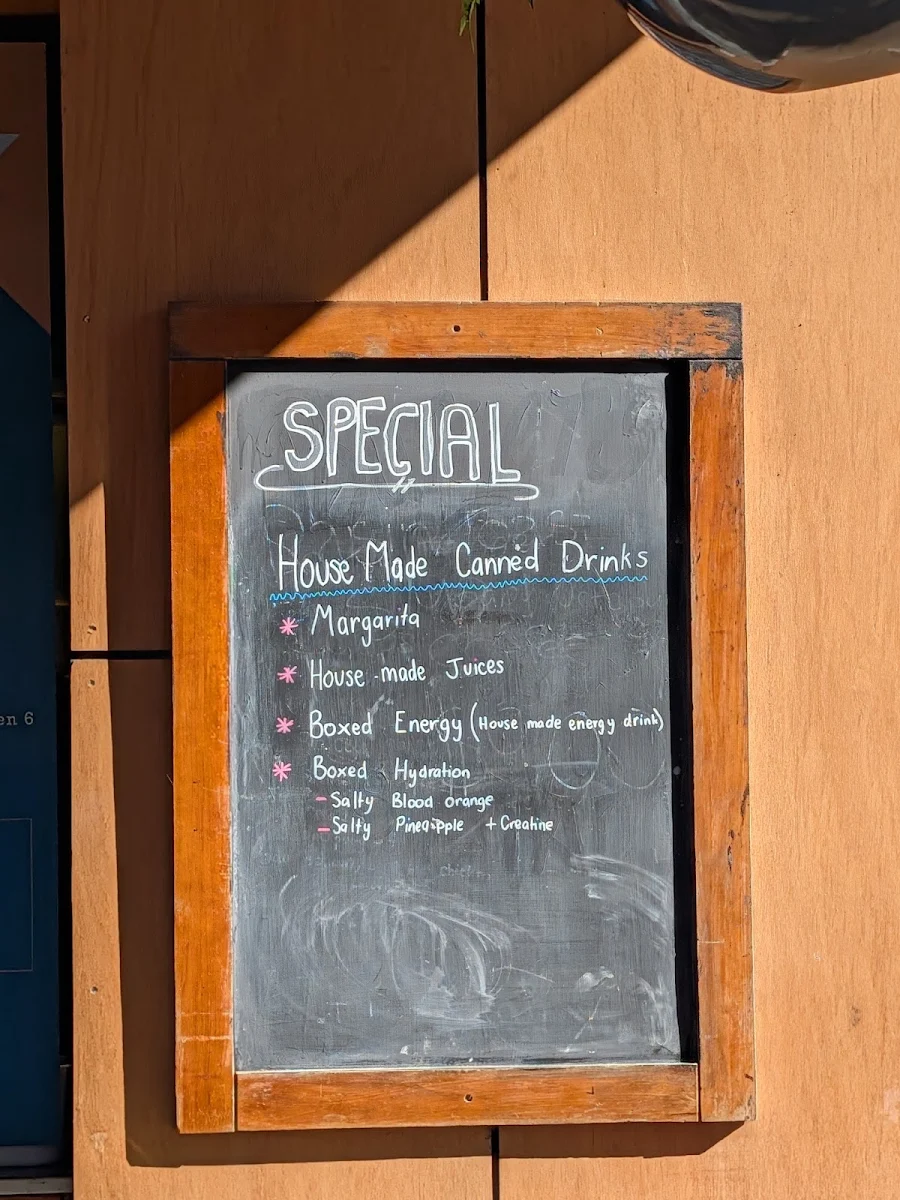 SPECIAL
House Made Canned Drinks
* Margarita
* House-made Juices
* Boxed Energy (House made energy drink)
* Boxed Hydration
- Salty Blood orange
- Salty Pineapple + Creatine
en 6